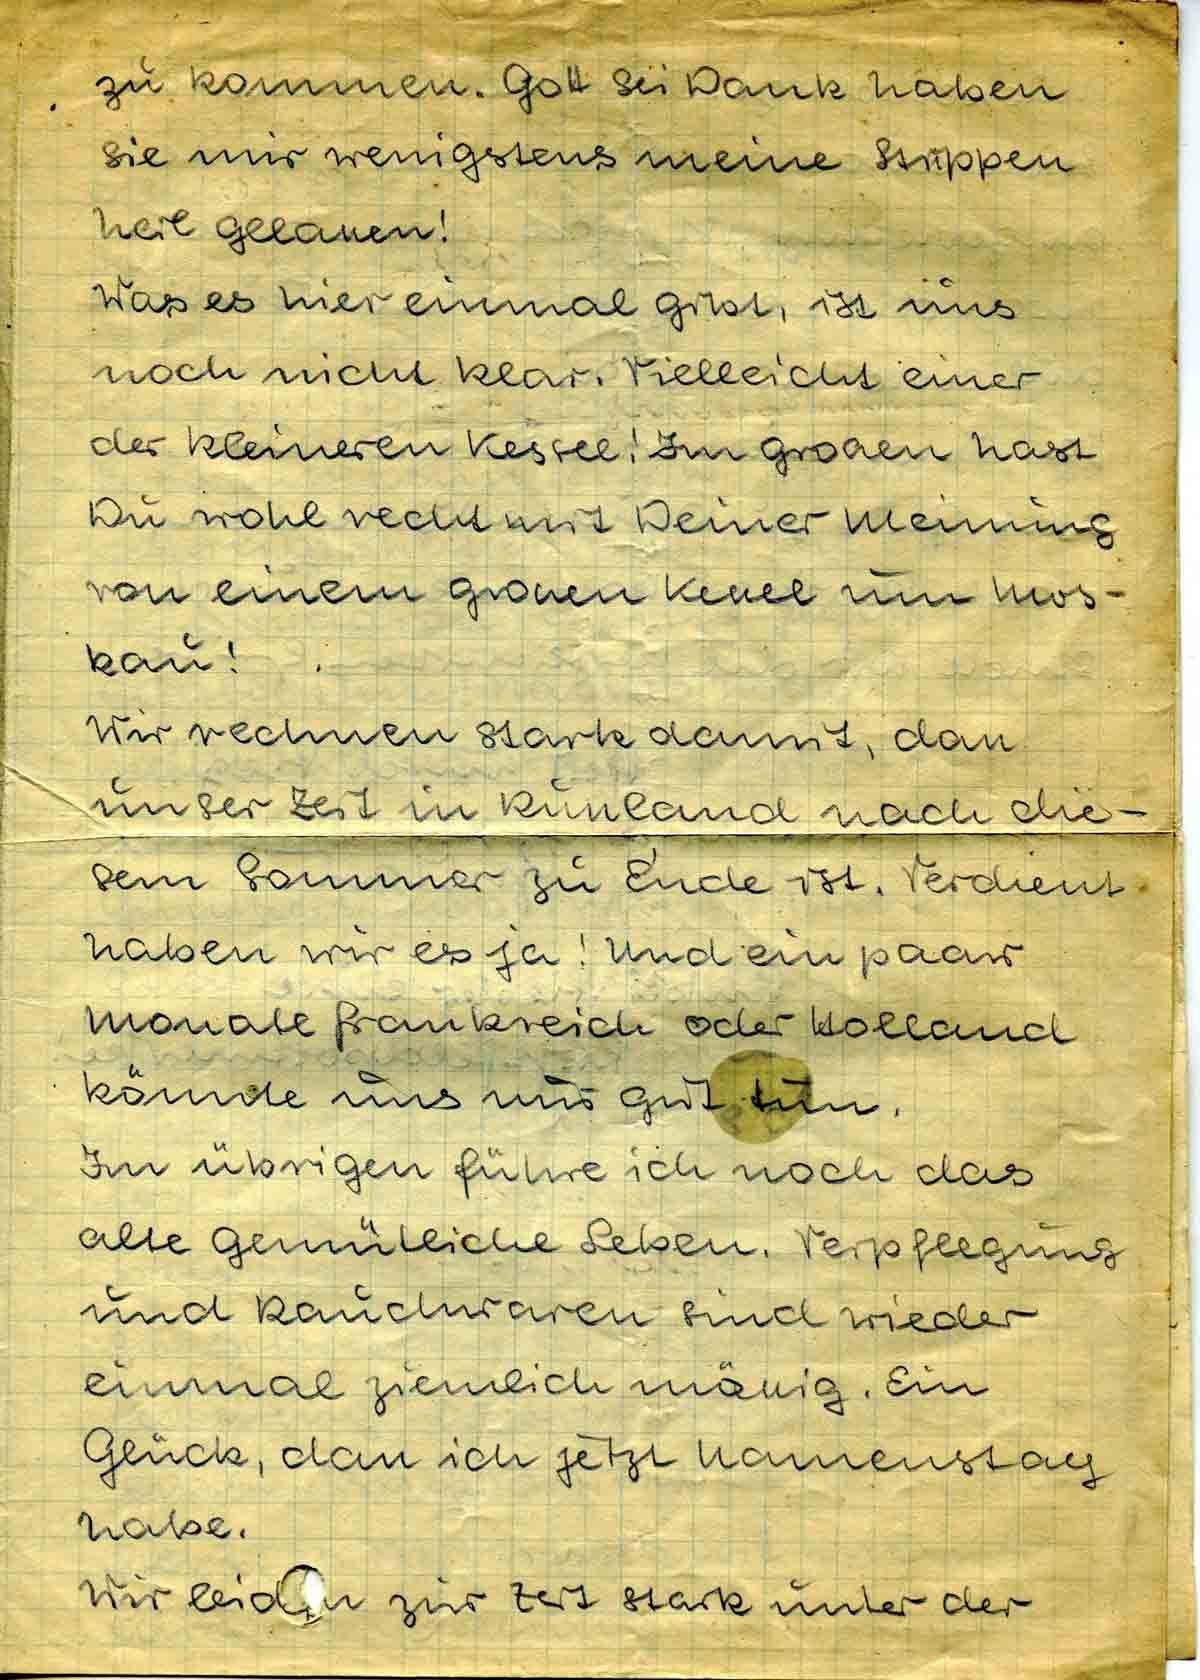 zu kommen. Gott sei Dank haben
sie mir wenigstens meine Strippen
heil gelassen!
Was es hier einmal gibt, ist uns
noch nicht klar. Vielleicht einer
der kleineren Kessel! Im grossen hast
Du wohl recht mit Deiner Meinung
von einem grossen Kessel um Mos-
kau!
Wir rechnen stark damit, dass
unser Zeit in Russland nach die-
sem Sommer zu Ende ist. Verdient
haben wir es ja! Und ein paar
Monate Frankreich oder Holland
könnte uns nur gut tun.
Im übrigen führe ich noch das
alte gemütliche Leben. Verpflegung
und Rauchwaren sind wieder
einmal ziemlich mässig. Ein
Glück, dass ich jetzt Namenstag
habe.
Wir leiden zur Zeit stark unter der